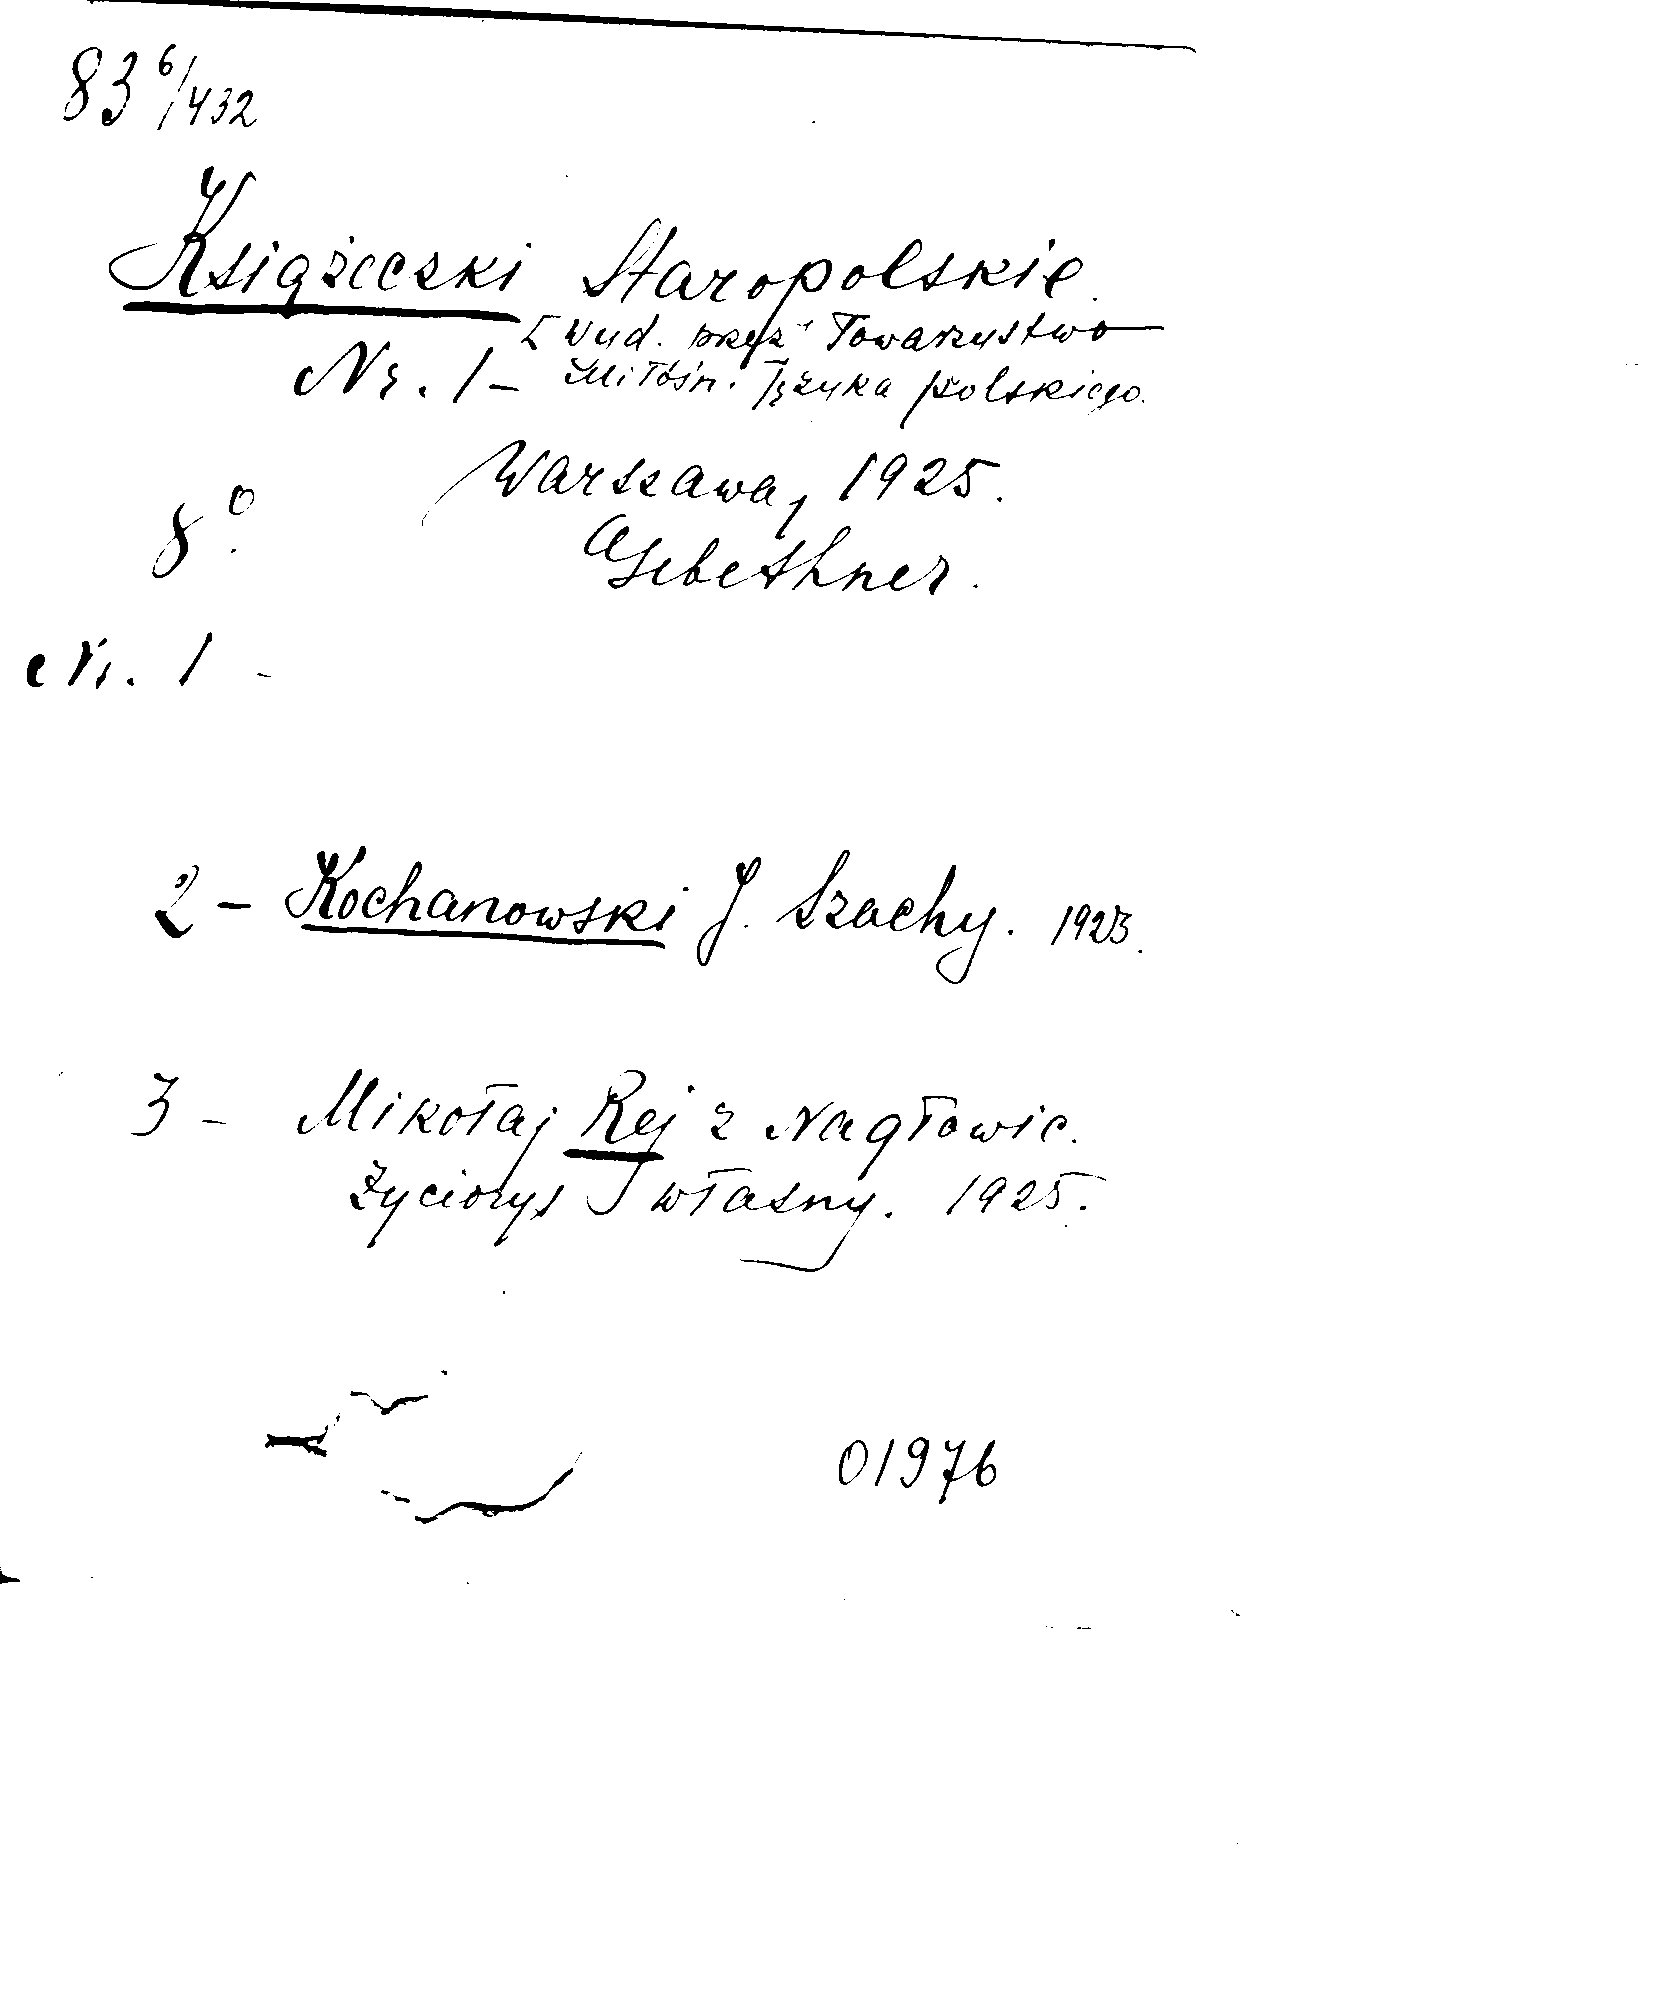 83 6/432
Książeczki Staropolskie.
[Wyd. przez Towarzystwo
Nr. 1 - Miłośn. Języka polskiego.
Warszawa, 1925.
8°.
Gebethner.
Nr. 1 -
2 - Kochanowski J. Szachy. 1923.
3 - Mikołaj Rej z Nagłowic.
Życiorys własny. 1925.
01976